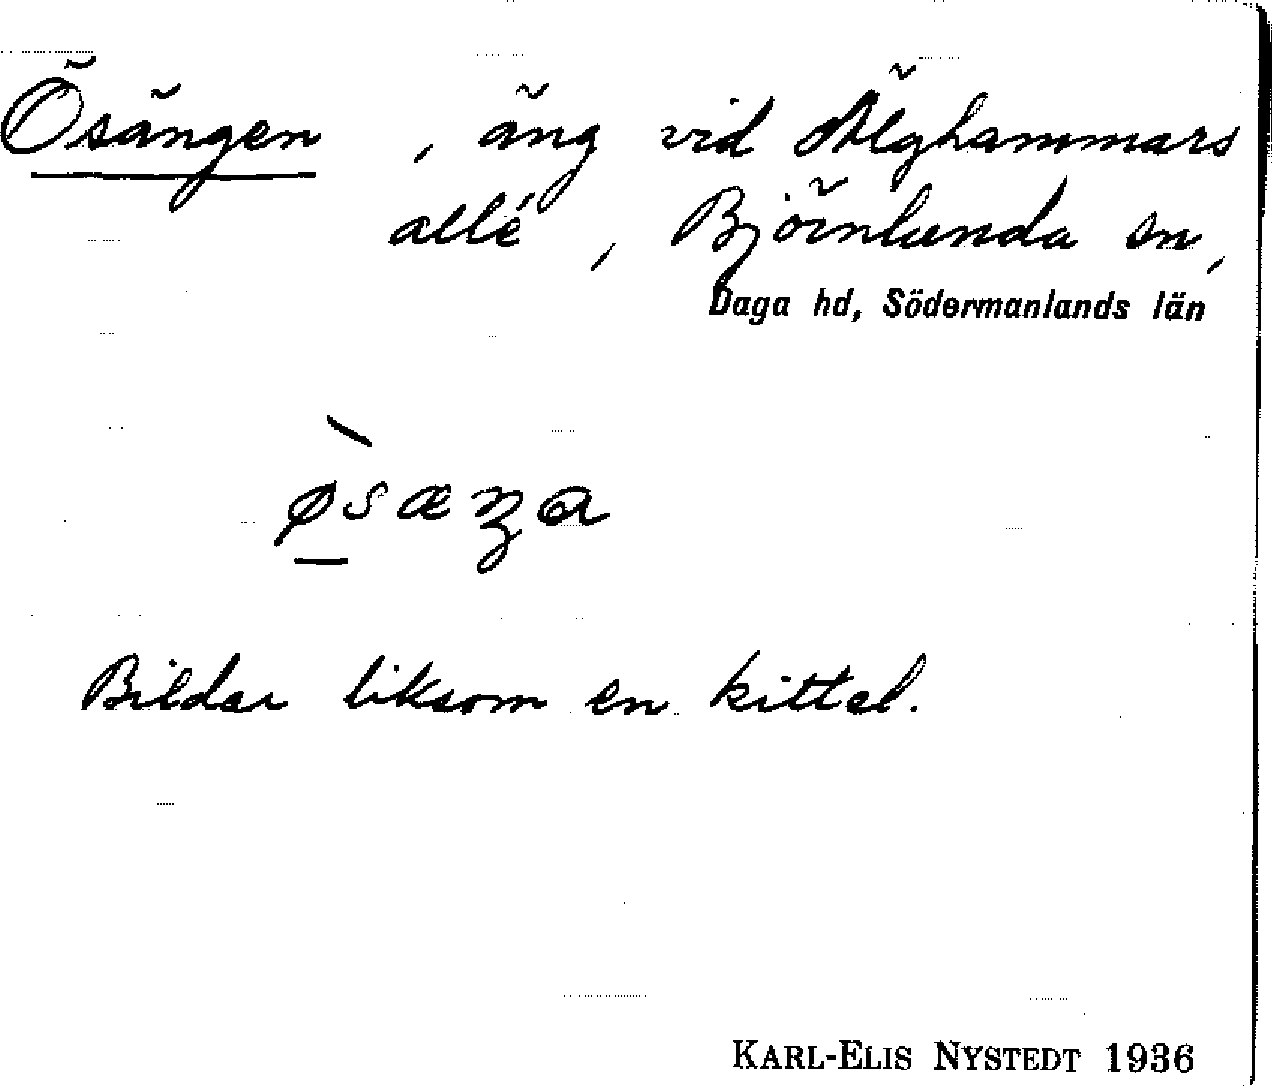 Ösängen, äng vid Älghammars
allé, Björnlunda sn,
Daga hd, Södermanlands län
Bildar liksom en kittel.
KARL-ELIS NYSTEDT 1936